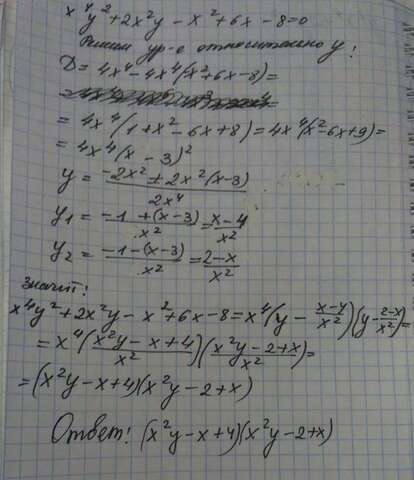 x⁴y² + 2x²y - x² + 6x - 8 = 0
Решим ур-е относительно y!
D = 4x⁴ - 4x⁴(x² + 6x - 8) =
= 4x⁴(1 + x² - 6x + 8) = 4x⁴(x² - 6x + 9) =
= 4x⁴(x - 3)²
y = (-2x² ± 2x²(x-3))/(2x⁴)
y₁ = (-1 + (x-3))/x² = (x-4)/x²
y₂ = (-1 - (x-3))/x² = (2-x)/x²
значит!
x⁴y² + 2x²y - x² + 6x - 8 = x⁴(y - (x-4)/x²)(y - (2-x)/x²) =
= x⁴((x²y - x + 4)/x²)((x²y - 2 + x)/x²) =
= (x²y - x + 4)(x²y - 2 + x)
Ответ! (x²y - x + 4)(x²y - 2 + x)